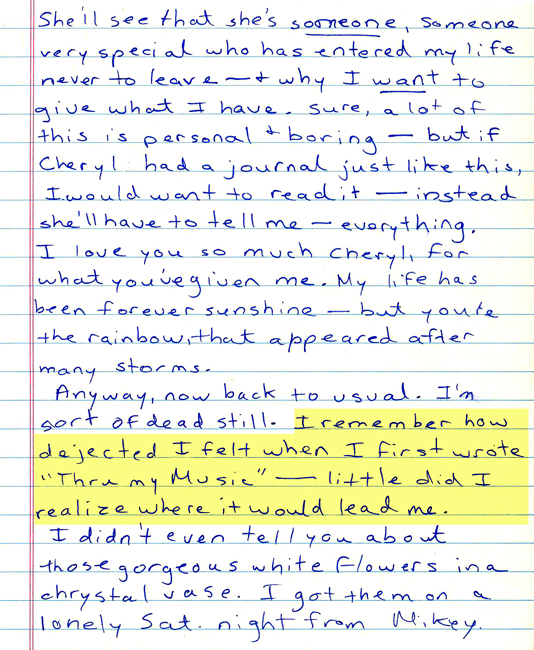 She'll see that she's someone, someone
very special who has entered my life
never to leave — + why I want to
give what I have. Sure, a lot of
this is personal + boring — but if
Cheryl had a journal just like this,
I would want to read it — instead
she'll have to tell me — everything.
I love you so much Cheryl, for
what you've given me. My life has
been forever sunshine — but you're
the rainbow, that appeared after
many storms.
Anyway, now back to usual. I'm
sort of dead still. I remember how
dejected I felt when I first wrote
"Thru my Music" — little did I
realize where it would lead me.
I didn't even tell you about
those gorgeous white flowers in a
chrystal vase. I got them on a
lonely Sat. night from Mikey.